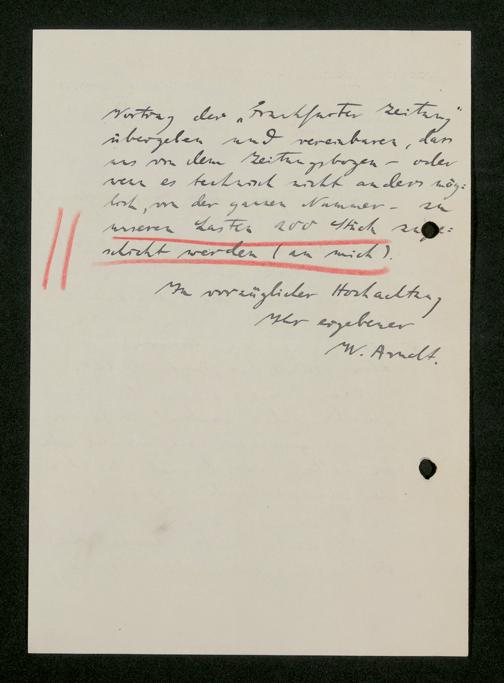 Vortrag der „Frankfurter Zeitung"
übergeben und vereinbaren, dass
uns von dem Zeitungsbogen - oder
wenn es technisch nicht anders mög=
lich, von der ganzen Nummer - zu
unseren Lasten 200 Stück zuge=
schickt werden (an mich).
In vorzüglicher Hochachtung
Ihr ergebener
W. Arndt.